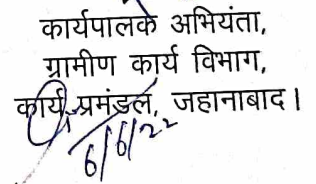 कार्यपालक अभियंता,
ग्रामीण कार्य विभाग,
कार्य प्रमंडल, जहानाबाद।
6/6/22